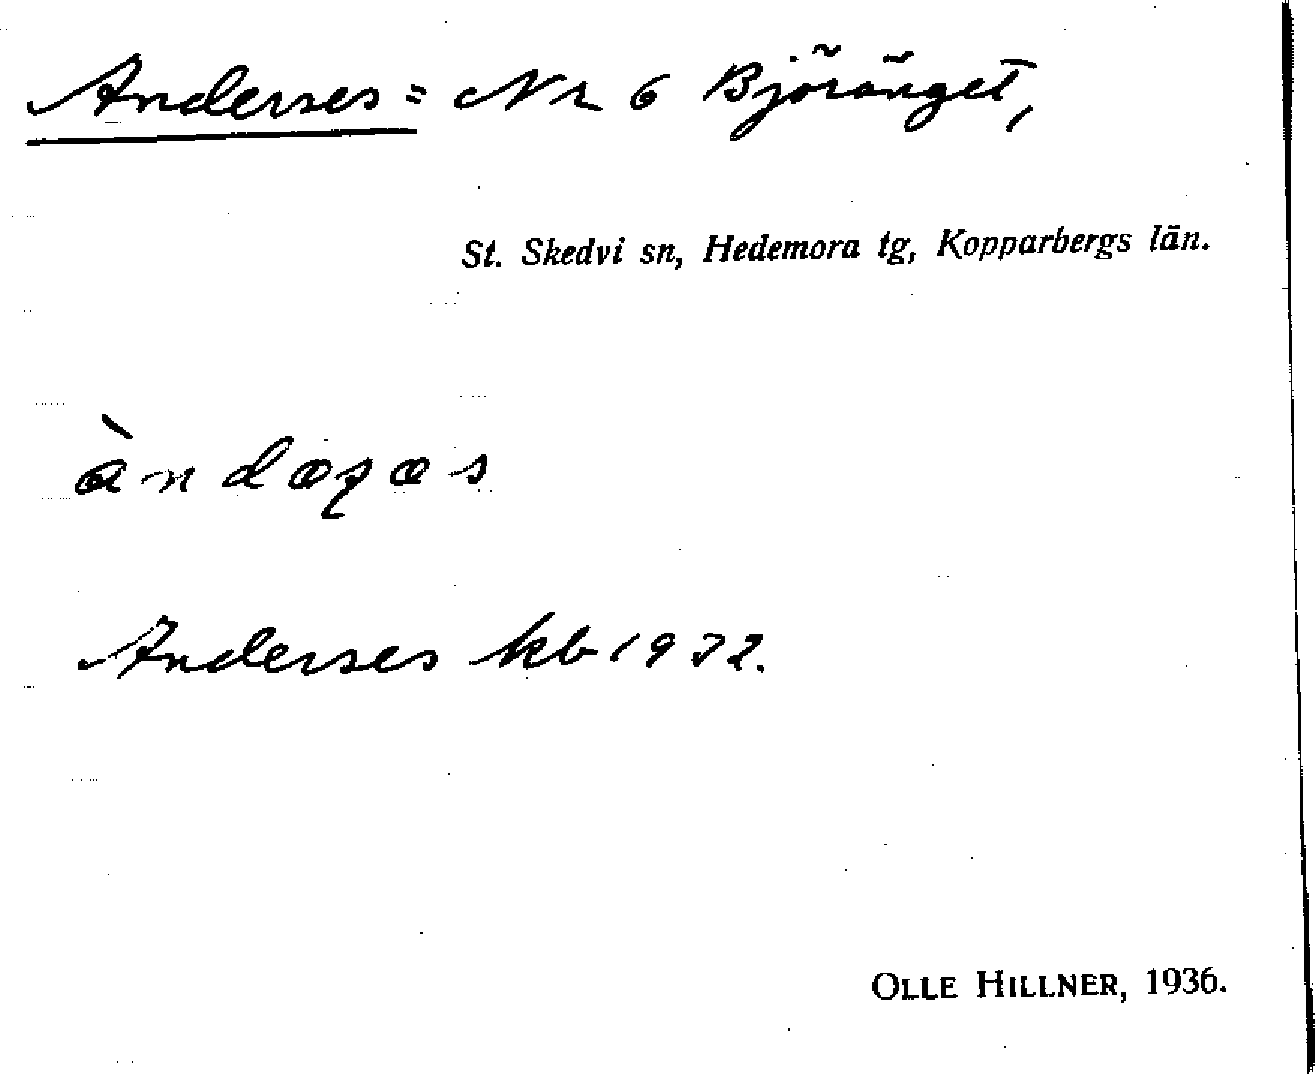 Anderses = Nr 6 Björänget,
St. Skedvi sn, Hedemora tg, Kopparbergs län.
Anderses kb 1932.
OLLE HILLNER, 1936.